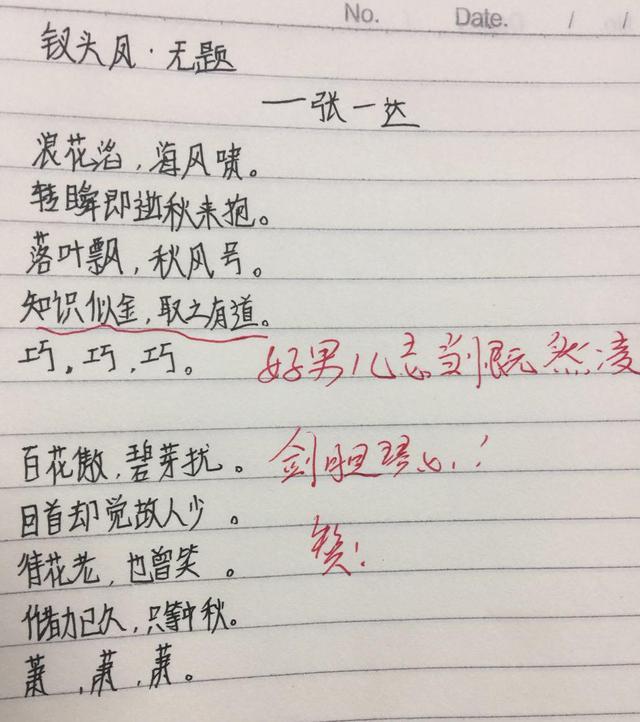 No. Date. / /
钗头凤·无题
——张一达
浪花滔，海风啸。
转瞬即逝秋来抱。
落叶飘，秋风号。
知识似金，取之有道。
巧，巧，巧。
好男儿志当
百花傲，碧芽扰。
剑胆琴心！
回首却觉故人少。
待花老，也曾笑。
赞！
借力已久，只等中秋。
萧，萧，萧。